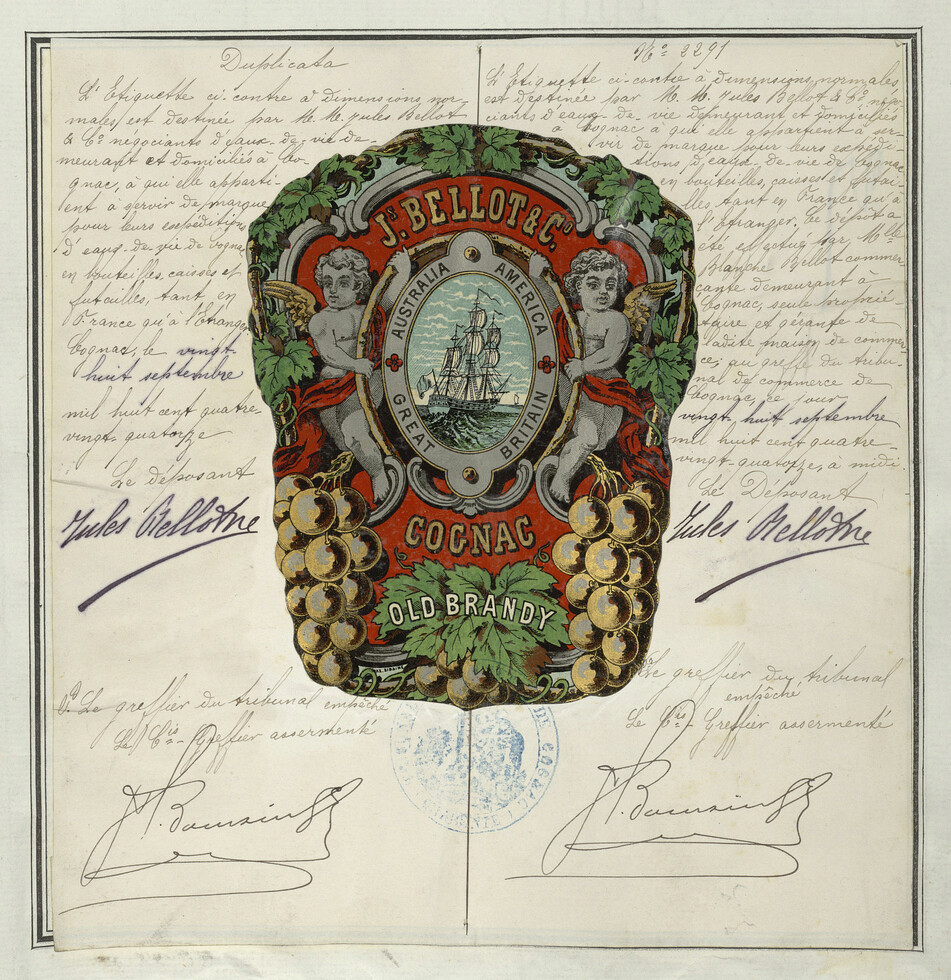 Duplicata
L'Etiquette ci-contre à dimensions nor-
males est destinée par M. M. Jules Bellot
& Cº négociants d'eaux-de-vie de-
meurant et domiciliés à Co-
gnac, à qui elle apparti-
ent à servir de marque
pour leurs expéditions
d'eaux-de-vie de Cognac
en bouteilles, caisses et
futailles, tant en
France qu'à l'Etranger
Cognac, le vingt
huit septembre
mil huit cent quatre-
vingt-quatorze
Le déposant
Jules Bellot & Cie
Pd Le greffier du tribunal empêché
Le Cis-Greffier assermenté
Nº 2291
L'Etiquette ci-contre à dimensions normales
est destinée par M. M. Jules Bellot & Cº négo-
ciants d'eaux-de-vie demeurant et domiciliés
à Cognac à qui elle appartient à ser-
vir de marque pour leurs expédi-
tions d'eaux-de-vie de Cognac
en bouteilles, caisses et futai-
lles tant en France qu'à
l'étranger. Le dépôt a
été effectué par Mlle
Blanche Bellot commer-
çante demeurant à
Cognac, seule proprié-
taire et gérante de
ladite maison de commer-
ce, au greffe du tribu-
nal de commerce de
Cognac, ce jour
vingt huit septembre
mil huit cent quatre-
vingt-quatorze, à midi.
Le Déposant
Jules Bellot & Cie
Le greffier du tribunal
empêché
Le Cis-Greffier assermenté
Js. BELLOT & Co.
AUSTRALIA AMERICA
GREAT BRITAIN
COGNAC
OLD BRANDY